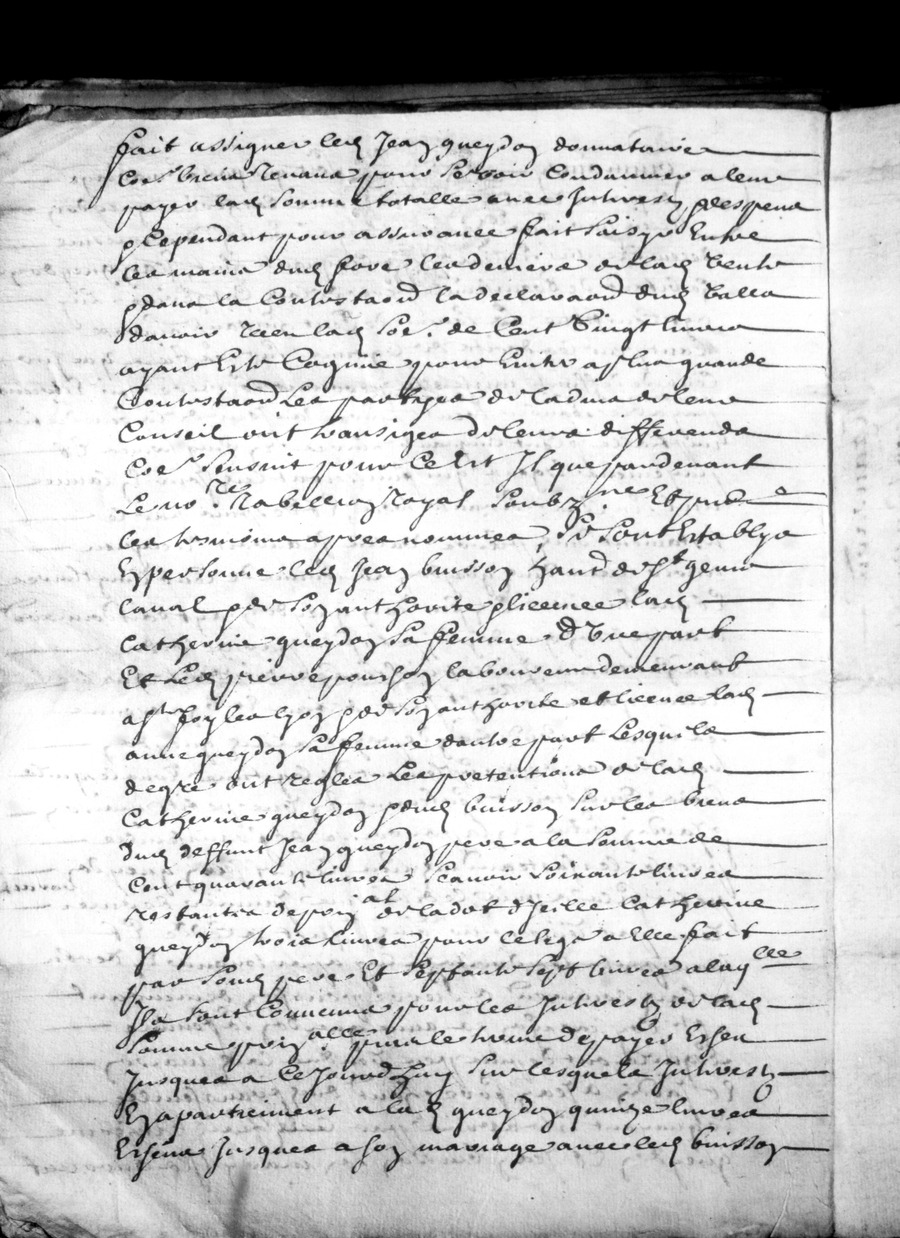 fait assigner led Jean gueydon donnataire
Coe. biens tenans pour se voir Condamner a leur
payer lad somme totalle avec Interestz &
Cependant pour assurance fait saisyr Entre
les mains dud fore les deniers de lad vente
dans la Contestaon la declaraon dud
davoir Receu lad soe. de Cent Vingt livres
ayant Este pour Entre a plus grande
Contestaon Les partyes de ladvis de leur
Conseil ont transiges de leurs differends
Coe. sensuit pour Ce Est Il que pardevant
Le no.re Tabellion Royal soubz.ne Et
les tesmoins apres nommes, Se sont Establys
En personne led Jean buisson hant. de st genis
laval & de son authorite licencie lad
Catherine gueydon sa femme d Une part
Et Led pierre ponchon laboureur demeurant
a ste foy les lyon & de son authorite et licence lad
anne gueydon sa femme dautre part Lesquels
de gre ont Regles Les pretentions de lad
Catherine gueydon & dud buisson sur les biens
dud deffunt Jean gueydon pere a la somme de
Cent quarante livres scavoir soixante livres
restantes de prin.al de la dot d Icelle Catherine
gueydon trois livres pour le lega a Elle fait
par sond pere Et septante sept livres a laq.lle
Ils sont Convenus pour les Interestz de lad
somme prin.alle puis le terme de payer Escheu
Jusques a Ce Jourdhuy sur lesquels Interestz
En apartiennent a lad gueydon quinze livres
Escheus Jusques a son mariage avec led buisson